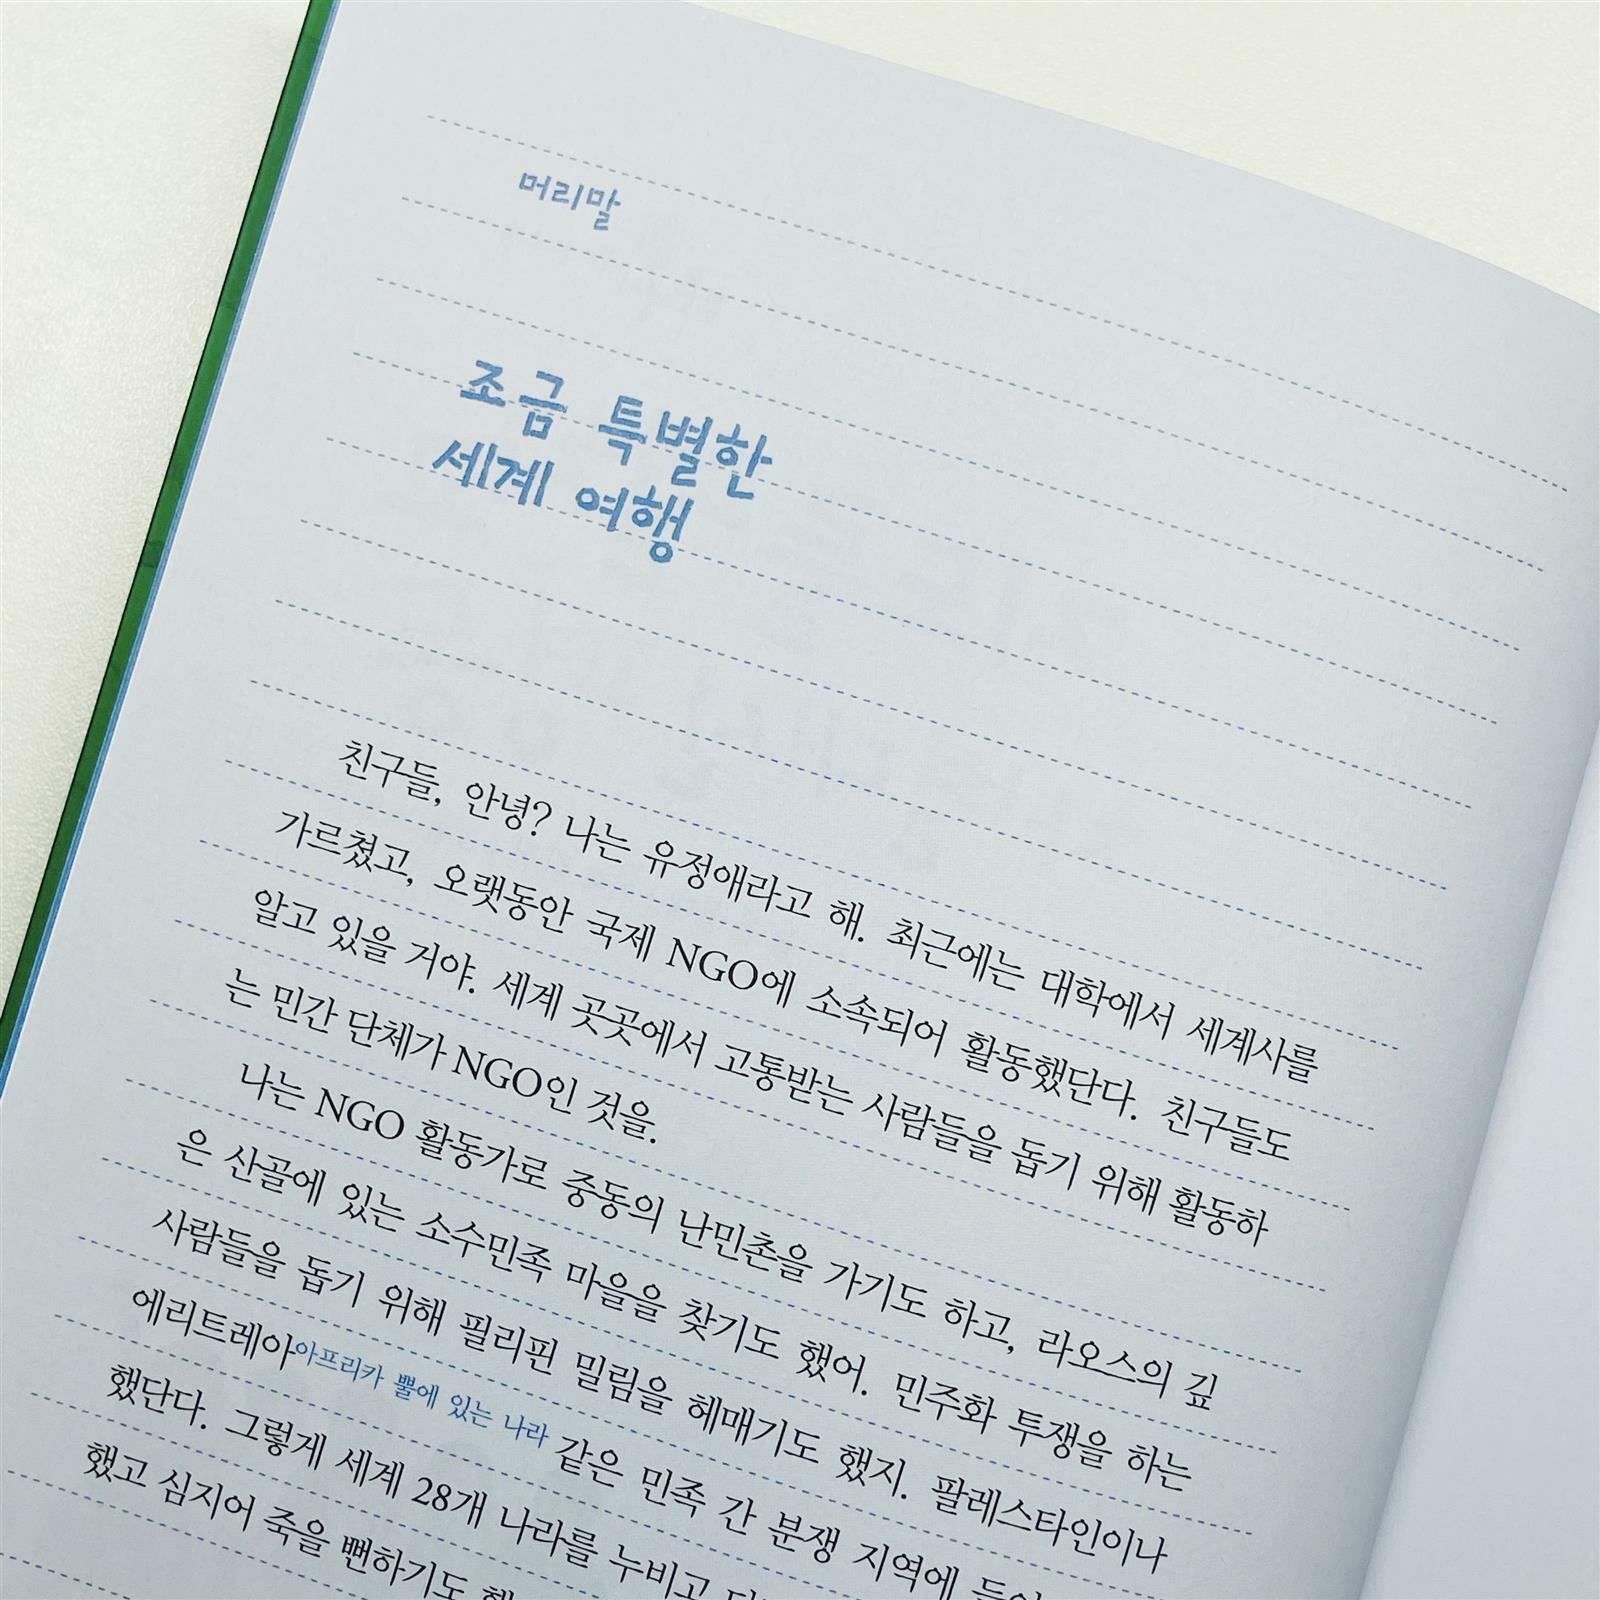 머리말
조금 특별한
세계 여행
친구들, 안녕? 나는 유정애라고 해. 최근에는 대학에서 세계사를
가르쳤고, 오랫동안 국제 NGO에 소속되어 활동했단다. 친구들도
알고 있을 거야. 세계 곳곳에서 고통받는 사람들을 돕기 위해 활동하
는 민간 단체가 NGO인 것을.
나는 NGO 활동가로 중동의 난민촌을 가기도 하고, 라오스의 깊
은 산골에 있는 소수민족 마을을 찾기도 했어. 민주화 투쟁을 하는
사람들을 돕기 위해 필리핀 밀림을 헤매기도 했지. 팔레스타인이나
에리트레아아프리카 뿔에 있는 나라 같은 민족 간 분쟁 지역에
했단다. 그렇게 세계 28개 나라를 누비고
했고 심지어 죽을 뻔하기도